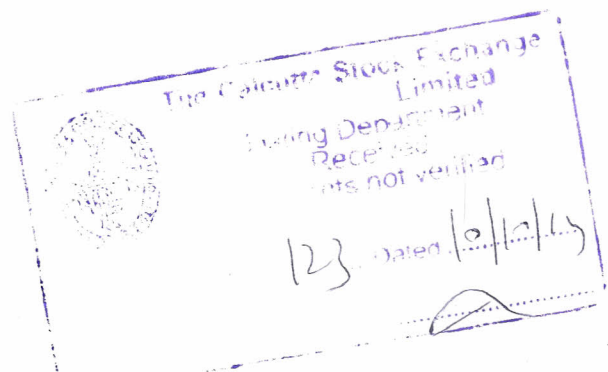 The Calcutta Stock Exchange
Limited
Department
Received
not verified
123 Dated